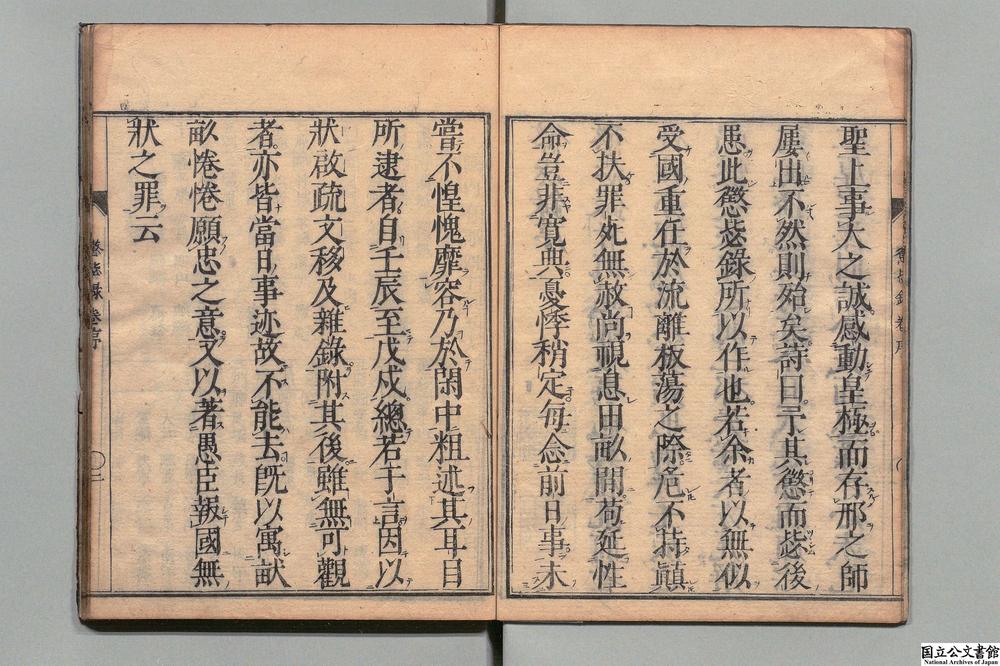 聖上事大之誠感動皇極而存邢之師
屢出不然則殆矣詩曰予其懲而毖後
患此懲毖錄所以作也若余者以無似
受國重任於流離板蕩之際危不持顚
不扶罪死無赦尚視息田畝間苟延性
命豈非寬典憂悸稍定每念前日事未
嘗不惶愧靡容乃於閑中粗述其耳目
所逮者自壬辰至戊戌總若干言因以
狀啟疏文移及雜錄附其後雖無可觀
者亦皆當日事迹故不能去旣以寓畎
畝惓惓願忠之意又以著愚臣報國無
狀之罪云
懲毖錄 卷序
〇二
国立公文書館
National Archives of Japan